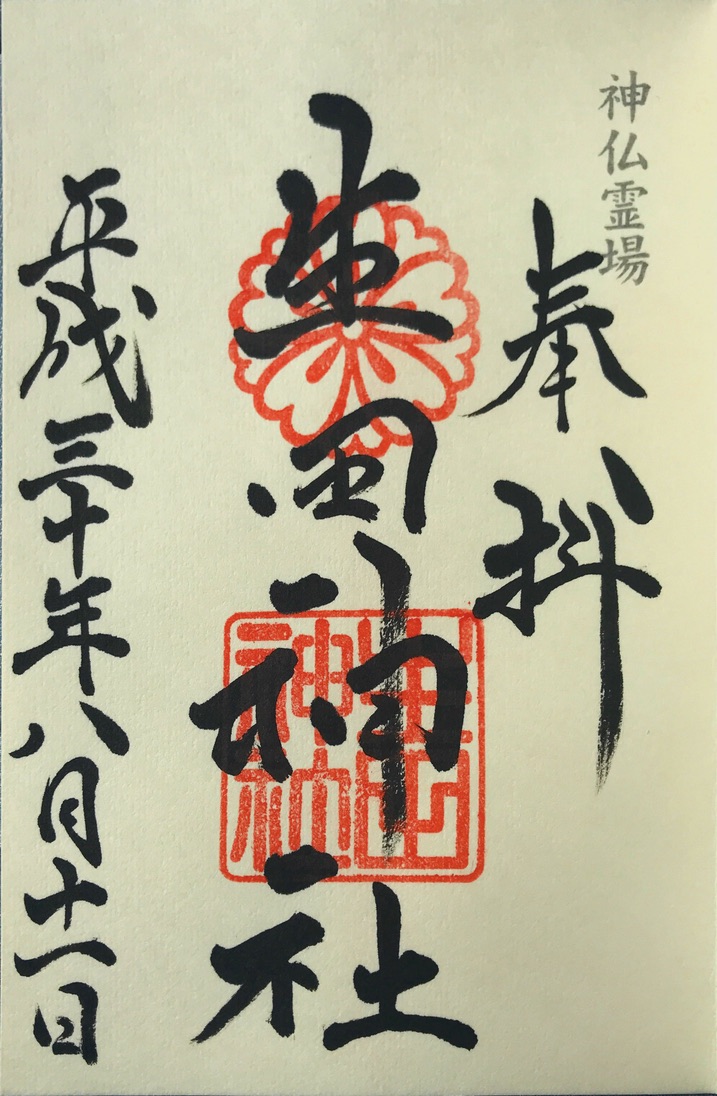 神仏霊場
奉拝
生田神社
生田神社
平成三十年八月十一日